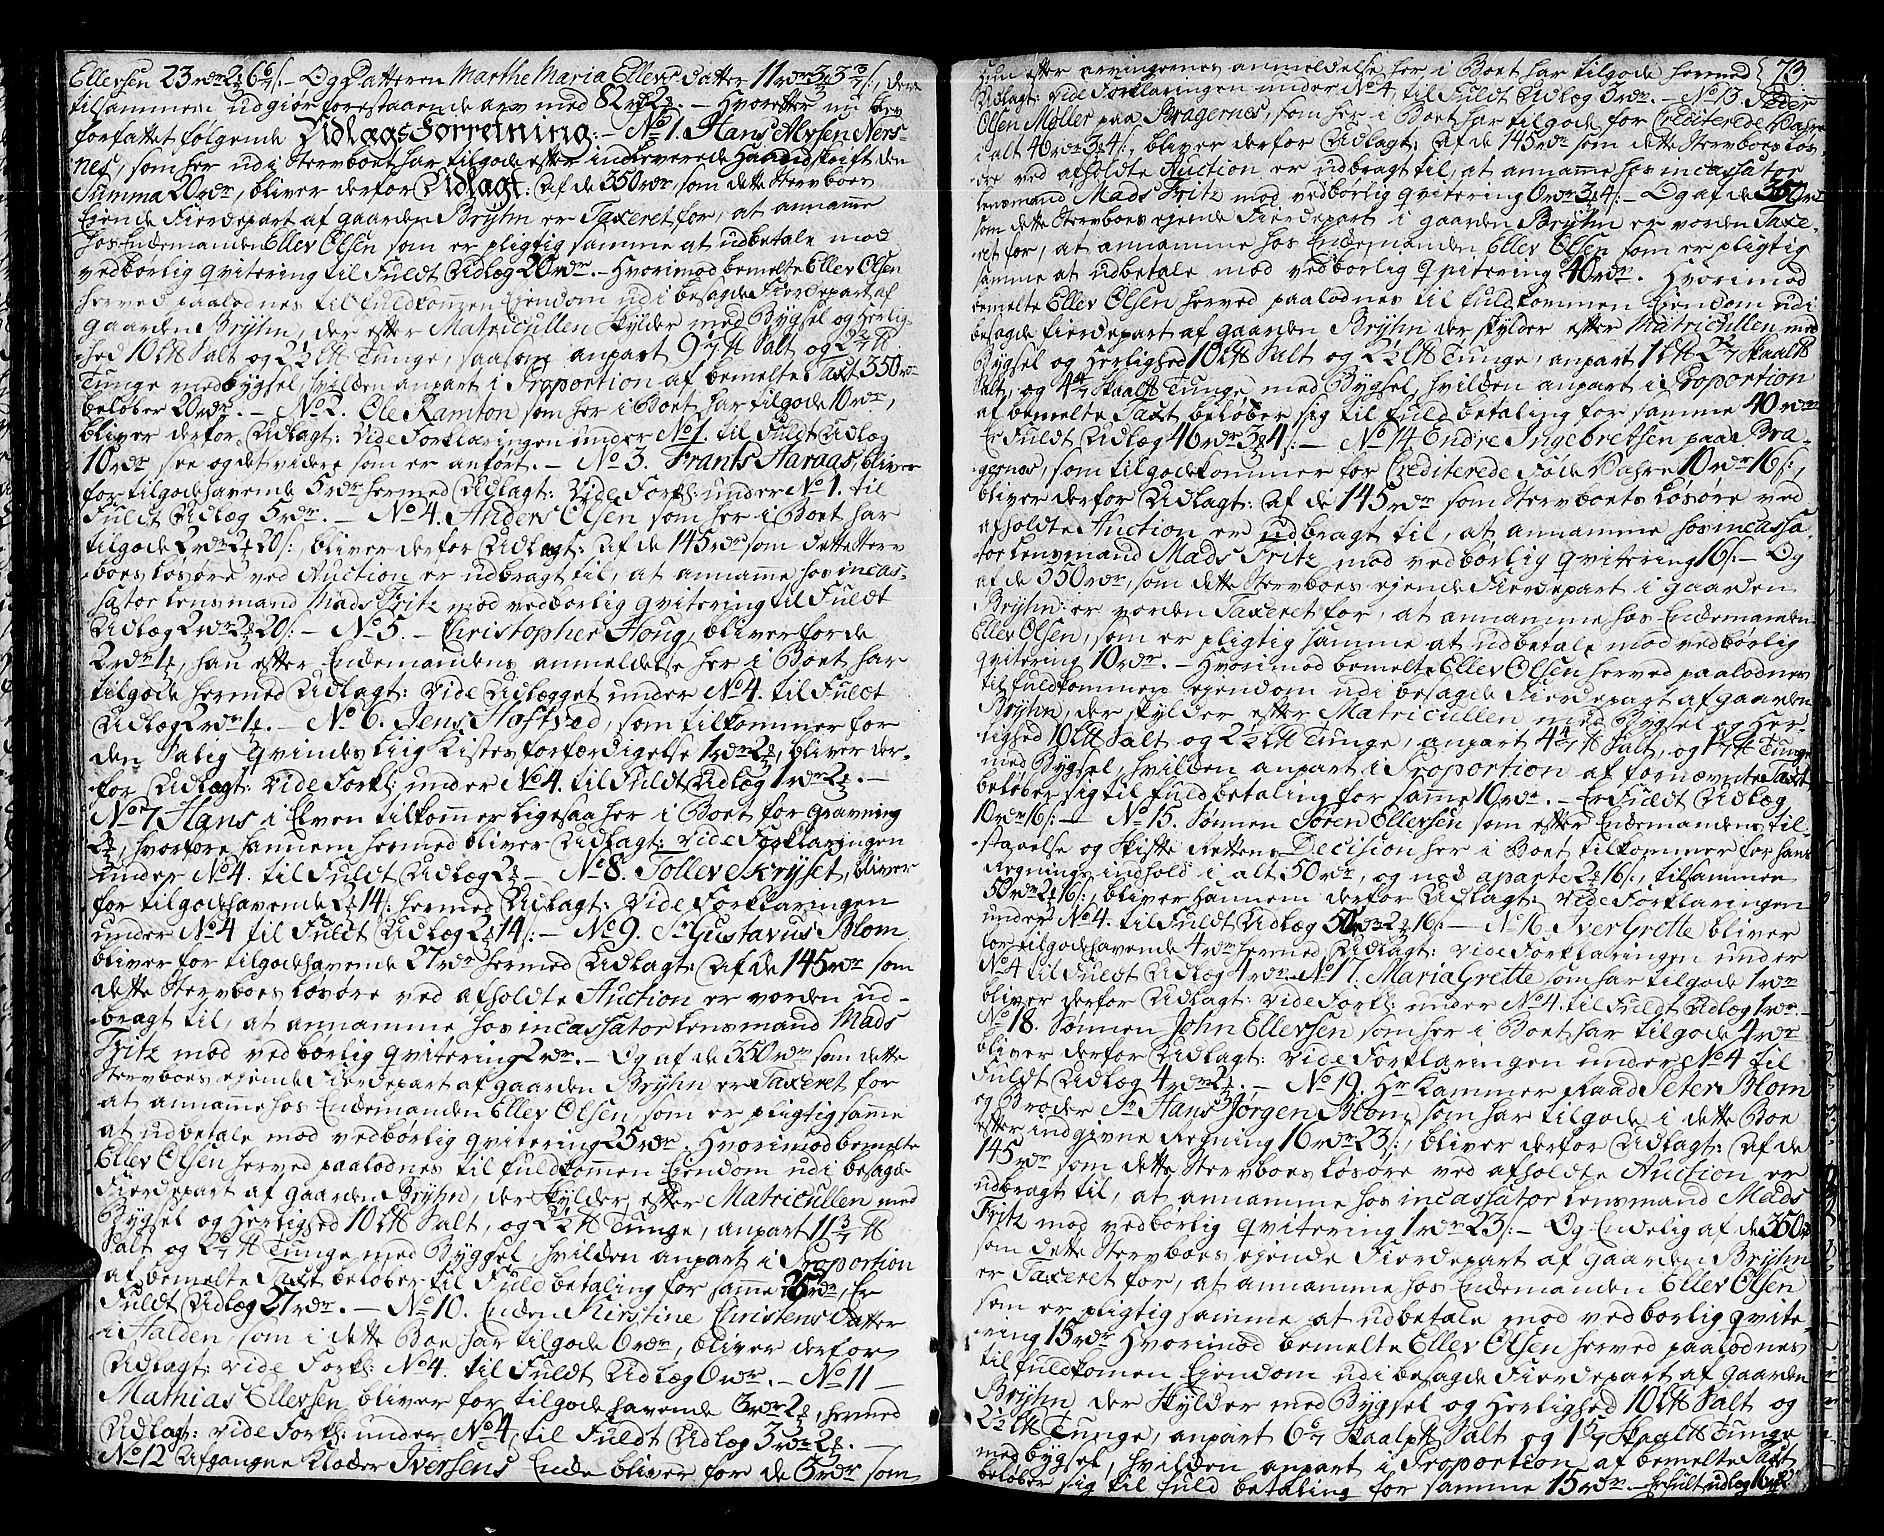 Ellevsen 23rdr 2₰ 6 6/7 s. – Og Datteren Marthe Maria Ellevs datter 11rdr 3₰ 3 3/7 s., der
tilsammen udgiør forestaaende arv med 82rdr 2₰. – Hvorefter nu blev
forfattet følgende Udlægs Forretning: – No 1. Hans Alfsen Ners-
næs, som her udi Stervboet har tilgode efter indleverede Haandskrift den
Summa 20rdr, bliver derfor Udlagt: Af de 350rdr, som dette Stervboes
Ejende Fierdepart af gaarden Bryhn er Taxeret for, at annamme
hos Endemanden Ellev Olsen som er pligtig samme at udbetale mod
vedbørlig qvitering til Fuldt Udlæg 20rdr. – Hvorimod bemelte Ellev Olsen
herved paalodnes til fuldkommen Ejendom udi besagde Fierdepart af
gaarden Bryhn, der efter Matricullen skylder med Bygsel og Herlig-
hed 10 L℔ Salt og 2½ L℔ Tunge, saasom anpart 9 1/7 ℔ Salt og 2 2/7 ℔
Tunge med bygsel, hvilden anpart i Proportion af bemelte Taxt 350rdr
beløber 20rdr. – No 2. Ole Ramton som her i Boet har tilgode 10rdr,
bliver derfor Udlagt: vide Forklaringen under No 1. til Fuldt Udlæg
10rdr see og det videre som er anført. – No 3. Frants Haraas, bliver
for tilgodehavende 5rdr hermed Udlagt: Vide Forkl: under No 1. til
Fuldt Udlæg 5rdr. – No 4. Anders Olsen som her i Boet har
tilgode 2rdr 2₰ 20 s:, bliver derfor Udlagt: af de 145rdr som dette Sterv
boes Løsøre ved Auction er udbragt til, at annamme hos incas-
sator Lensmand Mads Fritz mod vedbørlig qvitering til Fuldt
Udlæg 2rdr 2₰ 20 s: – No 5. – Christopher Houg, bliver for de
2rdr 1₰, han efter Endemandens anmeldelse her i Boet har
tilgode hermed Udlagt: vide Udlægget under No 4. til Fuldt
Udlæg 2rdr 1₰. – No 6. Jens Hoftved, som tilkommer for
den Salig Qvindes Liig Kistes forfærdigelse 1rdr 2₰, bliver der-
for Udlagt: vide Forkl: under No 4. til Fuldt Udlæg 1rdr 2₰. –
No 7 Hans i Elven tilkommer ligesaa her i Boet for Gravning
2₰, hvorfore hannem hermed bliver Udlagt: vide Forklaringen
under No 4. til Fuldt Udlæg 2₰ – No 8. Tollev Skryset, bliver
for tilgodehavende 2₰ 14 s: hermed Udlagt: vide Forklaringen
under No 4 til Fuldt Udlæg 2₰ 14 s: – No 9. Sr Gustavus Blom
bliver for tilgodehavende 27rdr hermed Udlagt: Af de 145rdr som
dette Stervboes Løsøre ved afholdte Auction er vorden ud-
bragt til, at annamme hos incassator Lensmand Mads
Fritz mod vedbørlig qvitering 2rdr. – Og af de 350rdr som dette
Stervboes ejende Fierdepart af gaarden Bryhn er Taxeret for
at annamme hos Endemanden Ellev Olsen, som er pligtig samme
at udbetale mod vedbørlig qvitering 25rdr. Hvorimod bemelte
Ellev Olsen herved paalodnes til fuldkomen Ejendom udi besagde
Fierdepart af gaarden Bryhn, der skylder efter Matricullen med
Bygsel og Herlighed 10 L℔ Salt, og 2½ L℔ Tunge, anpart 11 3/7 ℔
Salt og 2 6/7 ℔ Tunge med Bygsel, hvilden anpart i Proportion
af bemelte Taxt beløber til Fuld betaling for samme 25rdr, Er
Fuldt Udlæg 27rdr. – No 10. Enden Kirstine Christens Datter
i Halden, som i dette Boe har tilgode 6rdr, bliver derfor
Udlagt: vide Forkl: No 4. til Fuldt Udlæg 6rdr. – No 11 –
Mathias Ellevsen, bliver for tilgodehavende 3rdr 2₰, hermed
Udlagt: vide Forkl: under No 4, til Fuldt Udlæg 3rdr 2₰. –
No 12 Afgangne Kloder Iversens Enke bliver for de 3rdr som
hun efter arvingernes anmeldelse her i Boet har tilgode hermed 73.
Udlagt: vide Forklaringen under No 4, til Fuldt Udlæg 3rdr. – No 13. Peder
Olsen Møller paa Bragernes, som her i Boet har tilgode for Crediterede Vahre
i alt 46rdr 3₰ 4 s:, bliver derfor Udlagt: Af de 145rdr som dette Stervboes Løs-
øre ved afholdte Auction er udbragt til, at annamme hos incassator
Lensmand Mads Fritz mod vedbørlig qvitering 6rdr 3₰ 4 s: – Og af de 350rdr
som dette Stervboes ejende Fierdepart i gaarden Bryhn er vorden Taxe-
ret for, at annamme hos Endemanden Ellev Olsen som er pligtig
samme at udbetale mod vedbørlig qvitering 40rdr. Hvorimod
bemelte Ellev Olsen herved paalodnes til fuldkommen Ejendom udi
besagde Fierdepart af gaarden Bryhn der skylder efter Matricullen med
Bygsel og Herlighed 10 L℔ Salt og 2½ L℔ Tunge, anpart 1 L℔ 2 2/7 Skaal℔
Salt, og 4 4/7 Skaal℔ Tunge med Bygsel, hvilden anpart i Proportion
af bemelte Taxt beløber sig til fuld betaling for samme 40rdr
Er Fuldt Udlæg 46rdr 3₰ 4 s: – No 14 Endre Ingebretsen paa Bra-
gernæs, som tilgodekommer for Crediterede Føde Vahre 10rdr 16 s:,
bliver derfor Udlagt: Af de 145rdr som Stervboets Løsøre ved
afholdte Auction er udbragt til, at annamme hos incassa-
tor Lensmand Mads Fritz mod vedbørlig qvitering 16 s: – Og
af de 350rdr, som dette Stervboes ejende Fierdepart i gaarden
Bryhn er vorden Taxeret for, at annamme hos Endemanden
Ellev Olsen, som er pligtig samme at udbetale mod vedbørlig
qvitering 10rdr. – Hvorimod bemelte Ellev Olsen herved paalodnes
til fuldkommen ejendom udi besagde Fierdepart af gaarden
Bryhn, der skylder efter Matricullen med Bygsel og Her-
lighed 10 L℔ Salt og 2½ L℔ Tunge, anpart 4 4/7 ℔ Salt, og 1 1/7 ℔ Tunge
med Bygsel, hvilden anpart i Proportion af fornævnte Taxt
beløber sig til fuld betaling for samme 10rdr. – Er Fuldt Udlæg
10rdr 16 s: – No 15. Sønnen Søren Ellevsen som efter Endemandens til-
staaelse og Skifte Rettens Decision her i Boet tilkommer for hans
Regnings indhold i alt 50rdr, og nod aparte 2₰ 16 s:, tilsammen
50rdr 2₰ 16 s:, bliver hannem derfor Udlagt: vide Forklaringen
under No 4. til Fuldt Udlæg 50rdr 2₰ 16 s. – No 16 Iver Grette bliver
for tilgodehavende 4rdr hermed Udlagt: vide Forklaringen under
No 4 til Fuldt Udlæg 4rdr. No 17. Maria Grette som har tilgode 1rdr
bliver derfor Udlagt: vide Forkl: under No 4. til Fuldt Udlæg 1rdr. –
No 18. Sønnen John Ellevsen som her i Boet har tilgode 4rdr
bliver derfor Udlagt: vide Forklaringen under No 4 til
Fuldt Udlæg 4rdr 2₰. – No 19. Hr Kammer Raad Peter Blom
og Broder Sr Hans Jørgen Blom, som har tilgode i dette Boe
efter indgivne Regning 16rdr 23 s:, bliver derfor Udlagt: Af de
145rdr som dette Stervboes Løsøre ved afholdte Auction er
udbragt til, at annamme hos incassator Lensmand Mads
Fritz mod vedbørlig qvitering 1rdr 23 s: – Og Endelig af de 350r
som dette Stervboes ejende Fierdepart af gaarden Bryhn
er Taxeret for, at annamme hos Endemanden Ellev Olsen
som er pligtig samme at udbetale mod vedbørlig qvite-
ring 15rdr Hvorimod bemelte Ellev Olsen herved paalodnes
til fuldkomen Ejendom udi besagde Fierdepart af gaarden
Bryhn, der skylder med Bygsel og Herlighed 10 L℔ Salt og
2½ L℔ Tunge, anpart 6 6/7 Skaalp℔ Salt og 1 5/7 Skaal℔ Tunge
med bygsel, hvilden anpart i Proportion af bemelte Taxt
beløber sig til fuld betaling for samme 15rdr. – Er fult udlæg